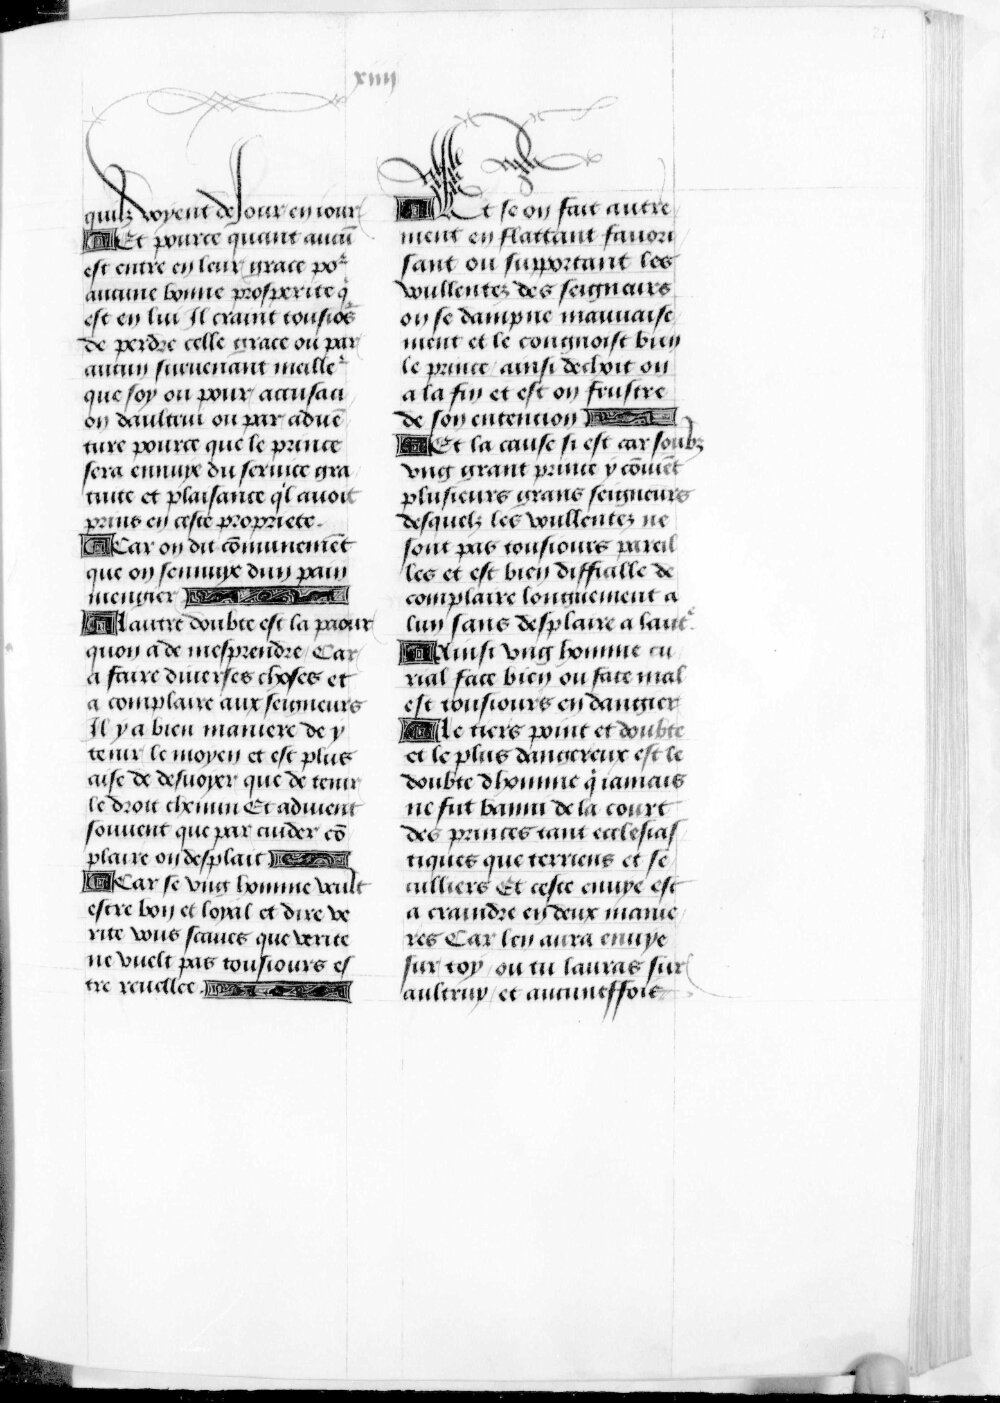 21
xiiii
quilz voyent de Jour en iour
Et pource quant aucū
est entre en leur grace poʳ
aucune bonne prosperite q̄
est en lui Il craint tousiōs
de perdre celle grace ou par
aucun suruenant meilleʳ
que soy ou pour accusaci
on daultrui ou par aduē
ture pource que le prince
sera ennuye du seruice gra
tuite et plaisance q'l auoit
prins en ceste propriete.
Car on dit cōmunemēt
que on sennuye dun pain
mengier
Lautre doubte est la paour
quon a de mesprendre / Car
a faire diuerses choses et
a complaire aux seigneurs
Il y a bien maniere de y
tenir le moyen et est plus
aise de desuoyer que de tenir
le droit chemin Et aduient
souuent que par cuider cō
plaire on desplait
Car se vng homme veult
estre bon et loyal et dire ve
rite vous scaues que verite
ne vuelt pas tousiours es
tre reuellee.
Et se on fait autre
ment en flattant fauori
sant ou supportant les
voullentez des seigneurs
on se dampne mauuaise
ment et le congnoist bien
le prince / ainsi dechoit on
a la fin et est on frustre
de son entencion
Et la cause si est car soubz
vng grant prince y cōuiēt
plusieurs grans seigneurs
desquelz les voullentez ne
sont pas tousiours pareil
les et est bien difficille de
complaire longuement a
lun sans desplaire a lautʳe.
Ainsi vng homme cu
rial face bien ou face mal
est tousiours en dangier
Le tiers point et doubte
et le plus dangereux est le
doubte dhomme q̄ iamais
ne fut banni de la court
des princes tant ecclesias
tiques que terriens et se
culliers Et ceste enuye est
a craindre en deux manie
res Car len aura enuye
sur toy / ou tu lauras sur
aultruy / et aucuneffois